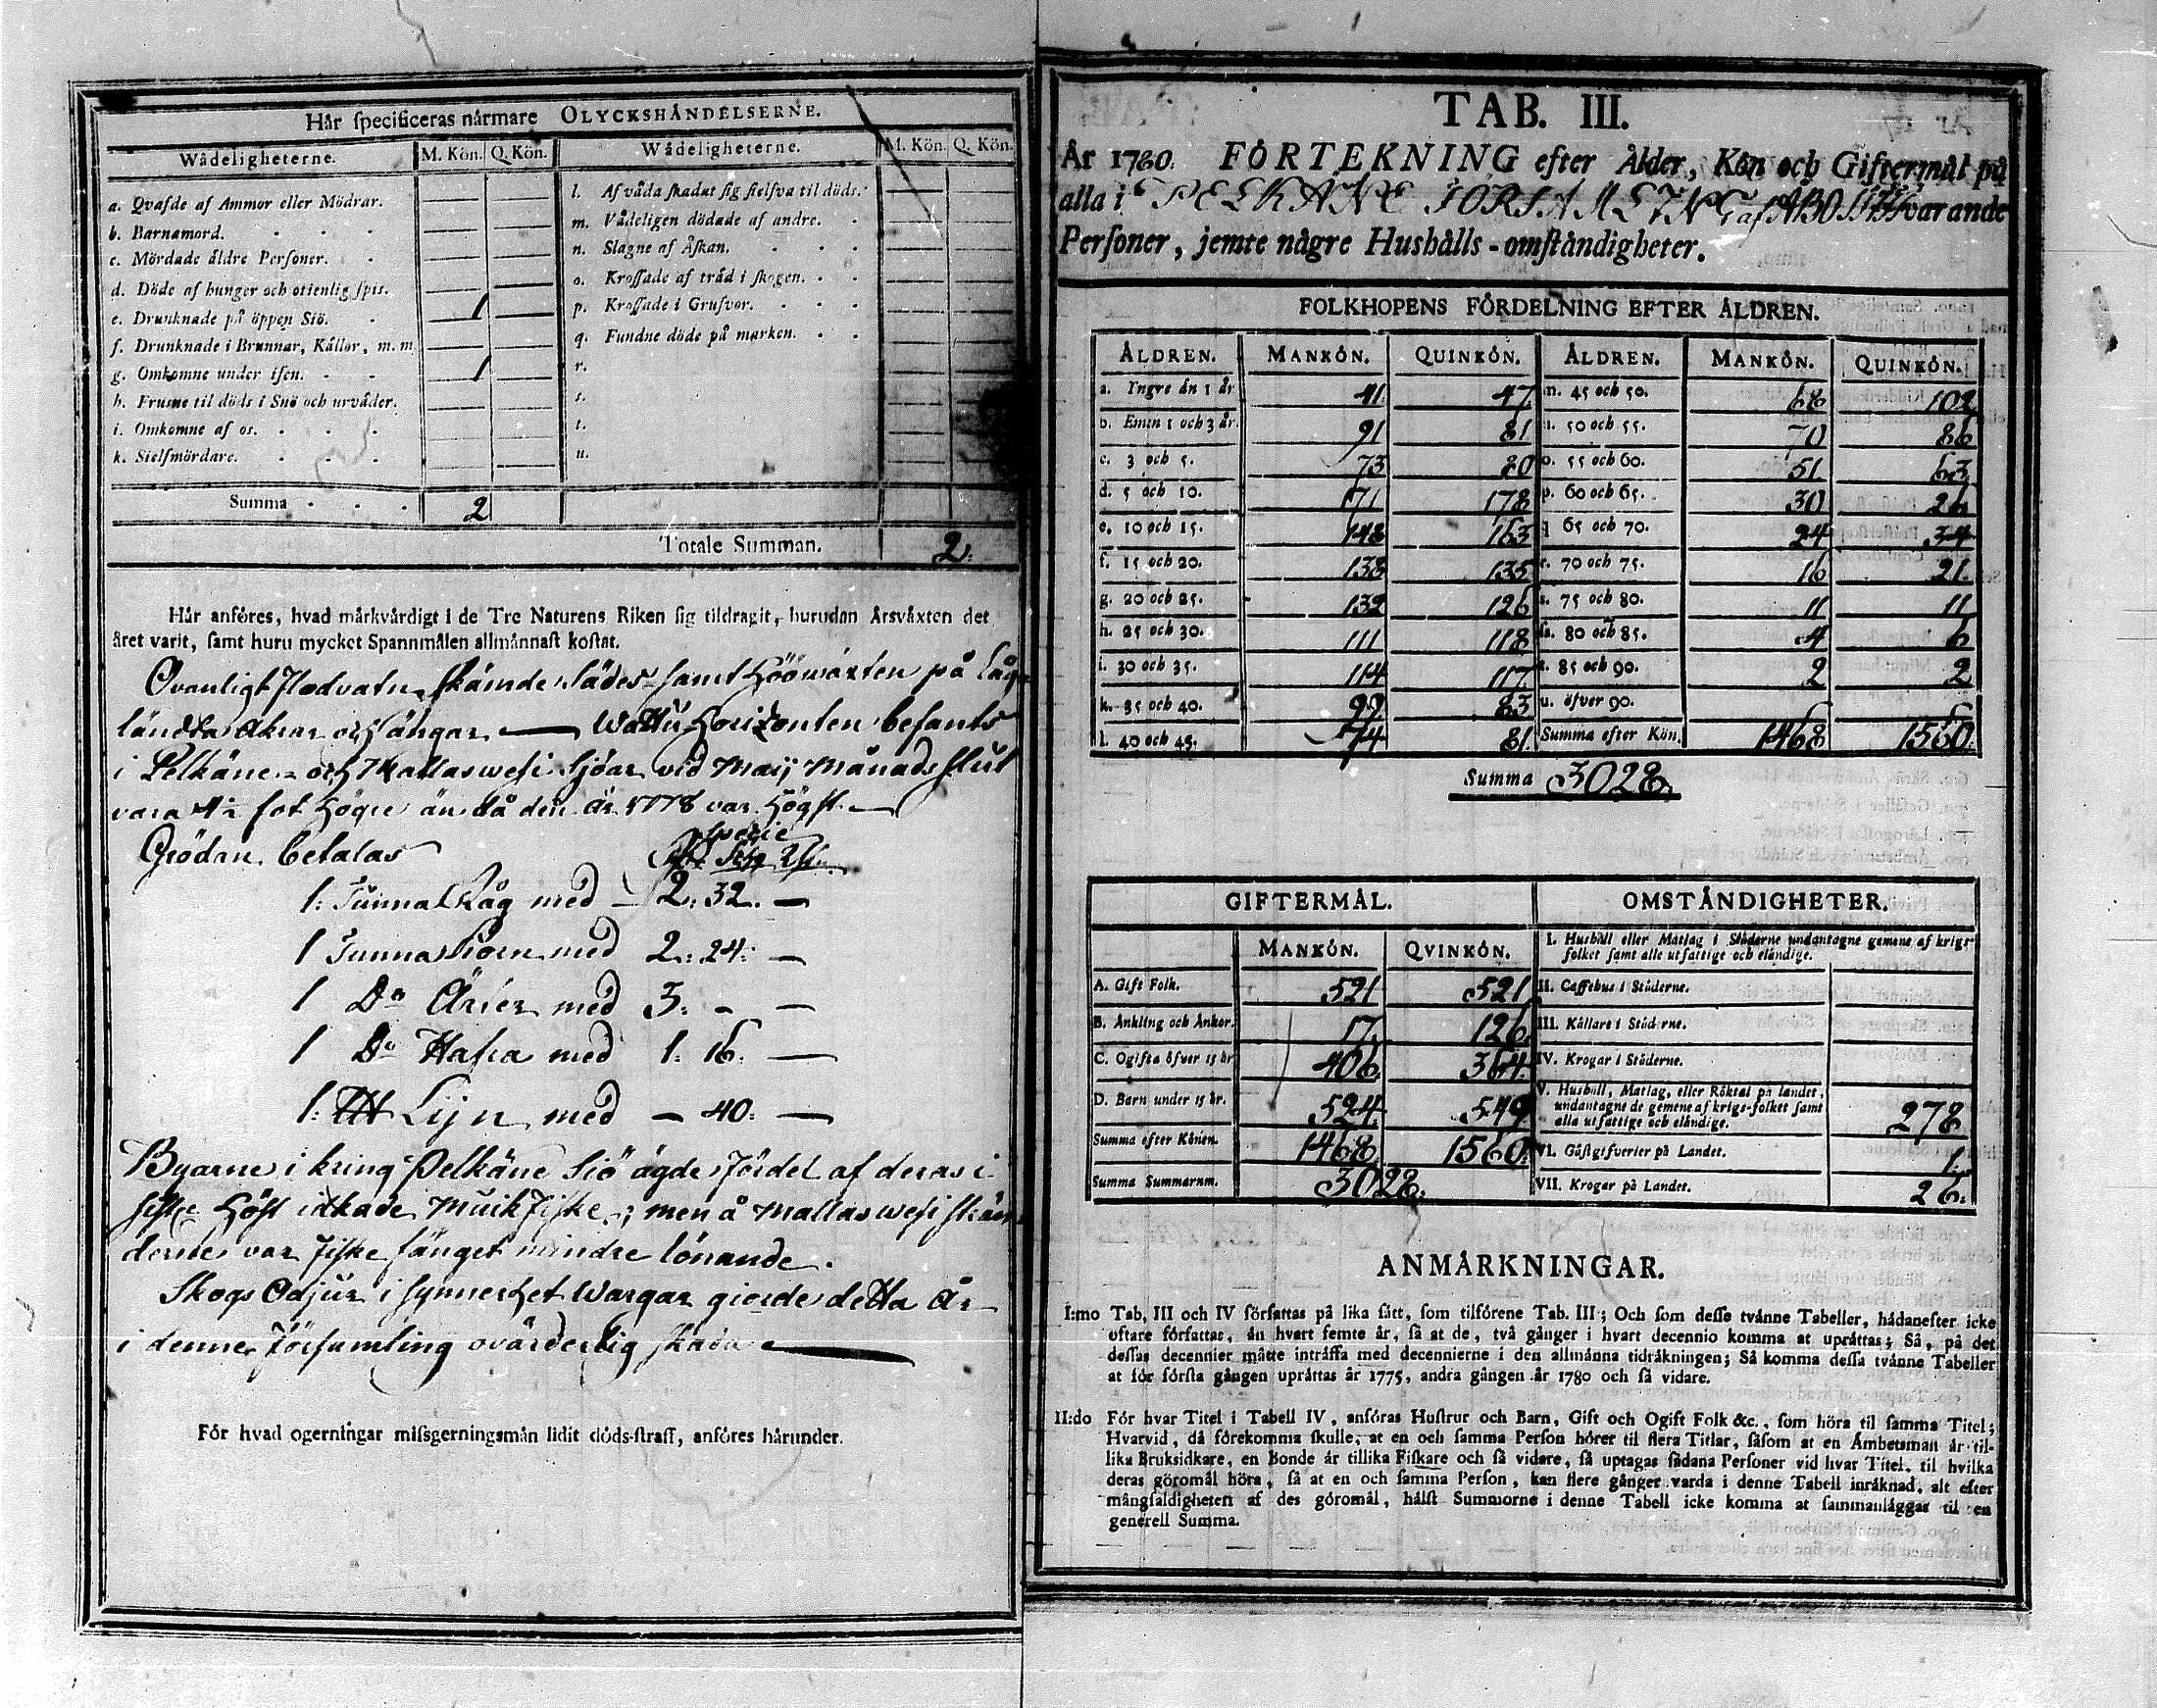 Hår specificeras nårmare OLYCKSHÅNDELSERNE.
Wådeligheterne. M. Kön. Q. Kön. Wådeligheterne. M. Kön. Q. Kön.
a. Qvafde af Ammor eller Mödrar. — — l. Af våda skadat sig sielfva til döds. — —
b. Barnamord. — — m. Vådeligen dödade af andre. — —
c. Mördade åldre Personer. — — n. Slagne af Åskan. — —
d. Döde af hunger och otienlig spis. — — o. Krossade af tråd i skogen. — —
e. Drunknade på öppen Siö. 1 — p. Krossade i Grufvor. — —
f. Drunknade i Brunnar, Kållor, m. m. — — q. Fundne döde på marken. — —
g. Omkomne under isen. 1 — r.
h. Frusne til döds i Snö och urvåder. — — s.
i. Omkomne af os. — — t.
k. Sielfmördare. — — u.
Summa 2
Totale Summan. 2.
Hår anföres, hvad mårkvårdigt i de Tre Naturens Riken sig tildragit, hurudan Årsvåxten det
året varit, samt huru mycket Spannmålen allmånnast kostat.
Ovanligt Flodvatn skämde Sädes- samt Hööväxten på låg-
ländta åkrar och ängar — Wattu Horizonten befants
i Pelkäne- och Mallaswesi Sjöar vid Maij Månads slut
vara 4½ fot högre än då den år 1778 var högst. —
Grödan betalas specie
1: Tunna Råg med — 2: 32. —
1 Tunna Korn med 2: 24: —
1 Do Ärter med 3: - —
1 Do Hafra med 1: 16: —
1: Lijn med — 40: —
Byarne i kring Pelkäne Siö ägde fördel af deras i
sistl. Höst idkade Muikfiske; men å Mallaswesi strän-
derne var Fiske fänget mindre lönande.
Skogs Odjur i synnerhet Wargar giorde detta År
i denne Församling ovärderlig skada —
För hvad ogerningar missgerningsmån lidit döds-straff, anföres hårunder.
TAB. III.
År 1780. FÖRTEKNING efter Ålder, Kön och Giftermål på
alla i PELKÄNE FÖRSAMLING af ÅBO Stift varande
Personer, jemte någre Hushålls-omståndigheter.
FOLKHOPENS FÖRDELNING EFTER ÅLDREN.
ÅLDREN. MANKÖN. QUINKÖN. ÅLDREN. MANKÖN. QUINKÖN.
a. Yngre ån 1 år 41. 47. m. 45 och 50. 68 102
b. Emin 1 och 3 år. 91 81 n. 50 och 55. 70 86
c. 3 och 5. 73 80 o. 55 och 60. 51 63
d. 5 och 10. 171 178 p. 60 och 65. 30 26
e. 10 och 15. 148 163 q 65 och 70. 24 34
f. 15 och 20. 138 135 r. 70 och 75. 16 21.
g. 20 och 25. 132 126 s. 75 och 80. 11 11
h. 25 och 30. 111 118 80 och 85. 4 6
i. 30 och 35. 114 117. 85 och 90. 2 2
k. 35 och 40. 99 83 u. öfver 90.
l. 40 och 45. 74 81. Summa efter Kön. 1468 1560.
Summa 3028.
GIFTERMÅL. OMSTÅNDIGHETER.
MANKÖN. QVINKÖN. I. Hushåll eller Matlag i Ståderne undantagne gemene af krigs-
folket samt alle utfattige och elåndige.
A. Gift Folk. 521 521 II. Caffehus i Ståderne.
B. Ånkling och Ånkor. 17. 126. III. Kållare i Ståderne.
C. Ogifta öfver 15 år 406. 364. IV. Krogar i Ståderne.
D. Barn under 15 år. 524. 549 V. Hushåll, Matlag, eller Röktal på landet,
undantagne de gemene af krigs-folket samt
alla utfattige och elåndige. 278
Summa efter Könen. 1468 1560. VI. Gåstgifverier på Landet. 1.
Summa Summarum. 3028. VII. Krogar på Landet. 26.
ANMÅRKNINGAR.
I:mo Tab. III och IV författas på lika sått, som tilförene Tab. III; Och som desse tvånne Tabeller, hådanefter icke
oftare författas, ån hvart femte år, så at de, två gånger i hvart decennio komma at upråttas; Så, på det
dessas decennier måtte intråffa med decennierne i den allmånna tidråkningen; Så komma dessa tvånne Tabeller
at för första gången upråttas år 1775, andra gången år 1780 och så vidare.
II:do För hvar Titel i Tabell IV, anföras Hustrur och Barn, Gift och Ogift Folk &c., som höra til samma Titel;
Hvarvid, då förekomma skulle, at en och samma Person hörer til flera Titlar, såsom at en Åmbetsman år til-
lika Bruksidkare, en Bonde år tillika Fiskare och så vidare, så uptagas sådana Personer vid hvar Titel, til hvilka
deras göromål höra, så at en och samma Person, kan flere gånger varda i denne Tabell inråknad, alt efter
mångfaldigheten af des göromål, hålst Summorne i denne Tabell icke komma at sammanlåggas til en
generell Summa.